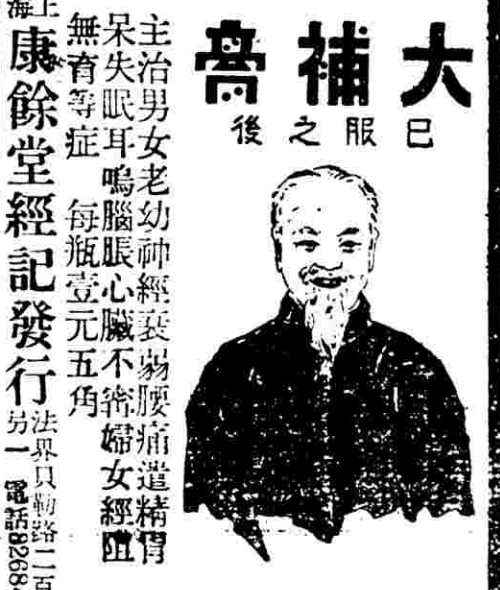 大補膏
巳服之後
主治男女老幼神經衰弱腰痛遺精胃
呆失眠耳鳴腦脹心臟不密婦女經阻
無育等症 每瓶壹元五角
上海
康餘堂經記發行
法界貝勒路二百
另一 電話8268